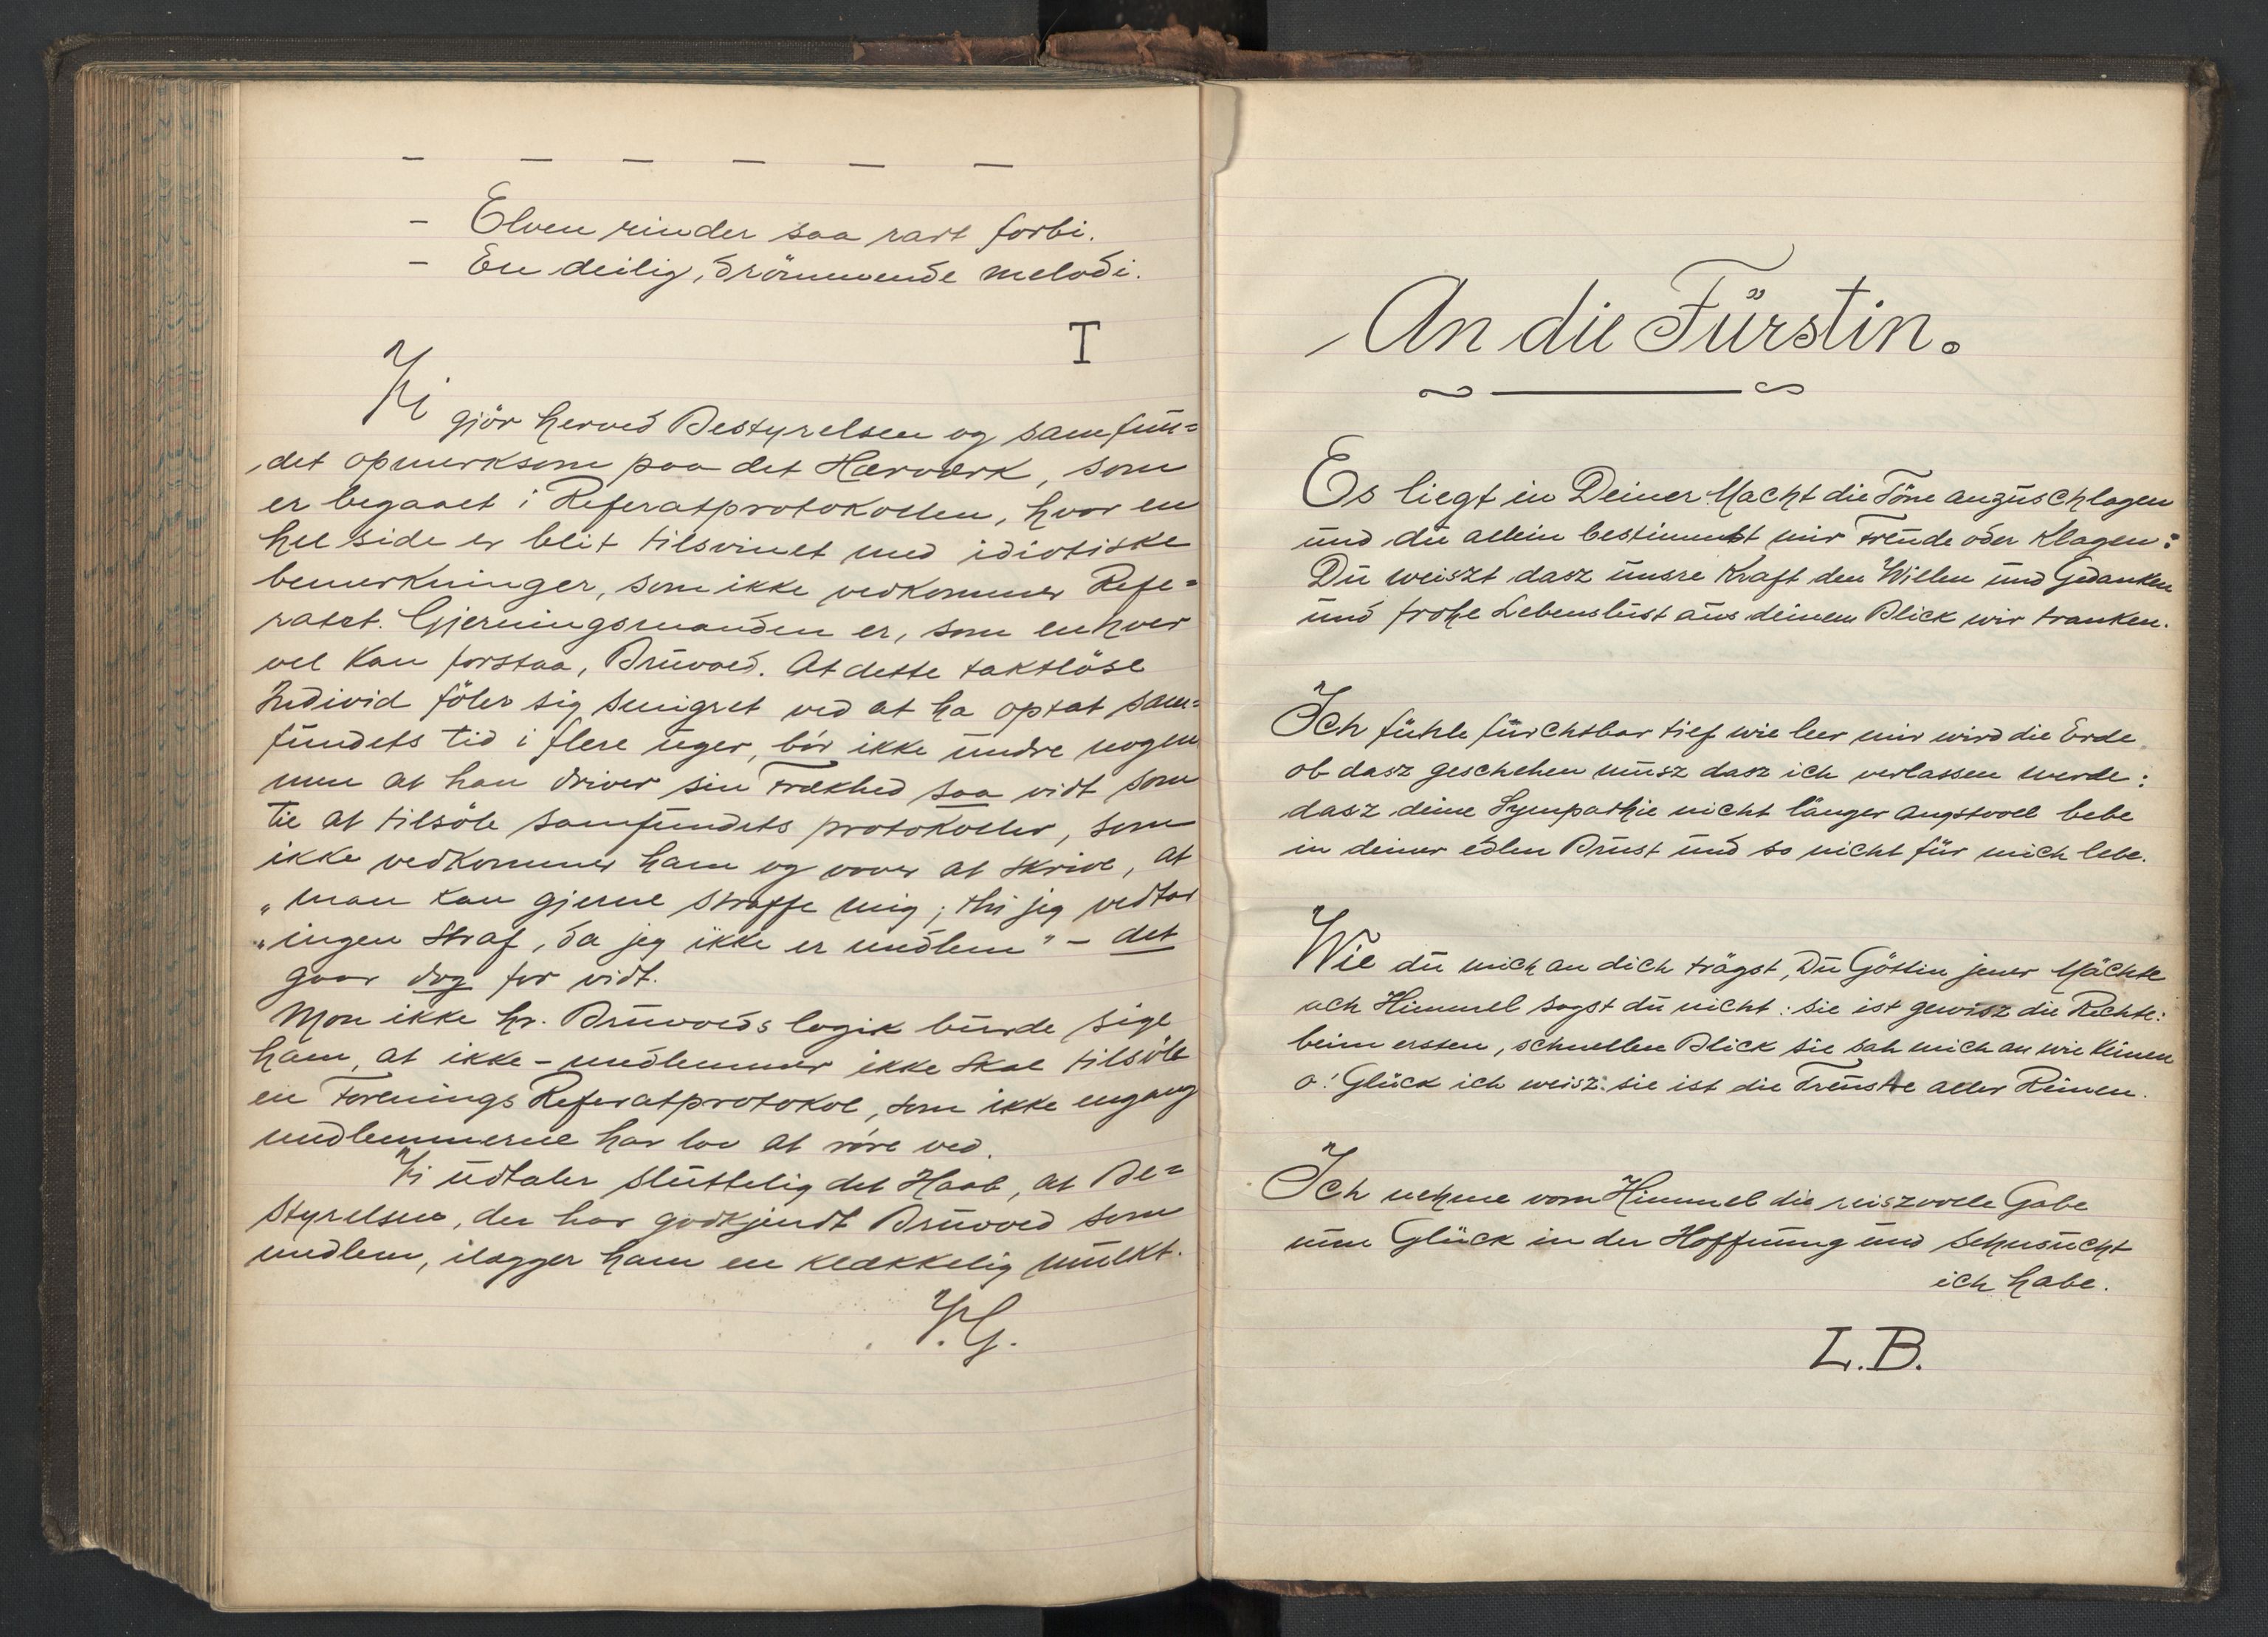 — — — — — —
– Elven rinder saa rart forbi.
– En deilig, drömmende melodi.
T
Vi
gjör herved Bestyrelsen og samfun=
det opmerksom paa det Hærværk, som
er begaaet i Referatprotokollen, hvor en
hel side er blit tilsvinet med idiotiske
bemerkninger, som ikke vedkommer Refe=
ratet. Gjerningsmanden er, som enhver
vel kan forstaa, Bruvold. At dette taktlöse
Individ föler sig smigret ved at ha optat sam=
fundets tid i flere uger, bör ikke undre nogen
men at han driver sin Frækhed saa vidt som
til at tilsöle samfundets protokoller, som
ikke vedkommer ham og vover at skrive, at
„man kan gjerne straffe mig; thi jeg vedtar
„ingen straf, da jeg ikke er medlem" – det
gaar dog for vidt.
Mon ikke hr. Bruvolds logik burde sige
ham, at ikke-medlemmer ikke skal tilsöle
en Forenings Referatprotokol, som ikke engang
medlemmerne har lov at röre ved.
Vi udtaler sluttelig det Haab, at Be=
styrelsen, der har godkjendt Bruvold som
medlem, ilægger ham en klækkelig mulkt.
V.G.
An die Fürstin.
Es liegt in Deiner Macht die Töne anzuschlagen
und du allein bestimmst mir Freude oder Klagen:
Du weiszt dasz unsre Kraft den Willen und Gedanken
und frohe Lebenslust aus deinem Blick wir tranken.
Ich fühle furchtbar tief wie leer mir wird die Erde
ob dasz geschehen musz dasz ich verlassen werde:
dasz deine Sympathie nicht länger angstvoll bebe
in deiner edlen Brust und so nicht für mich lebe.
Wie du mich an dich trägst, Du Göttin jener Mächte
ach Himmel sagst du nicht: sie ist gewisz die Rechte:
beim ersten, schnellen Blick sie sah mich an wie keinen
o! Glück ich weisz: sie ist die Treuste aller Reinen.
Ich nehme vom Himmel die reiszvolle Gabe
nun Glück in der Hoffnung und Sehnsucht
ich habe.
L.B.